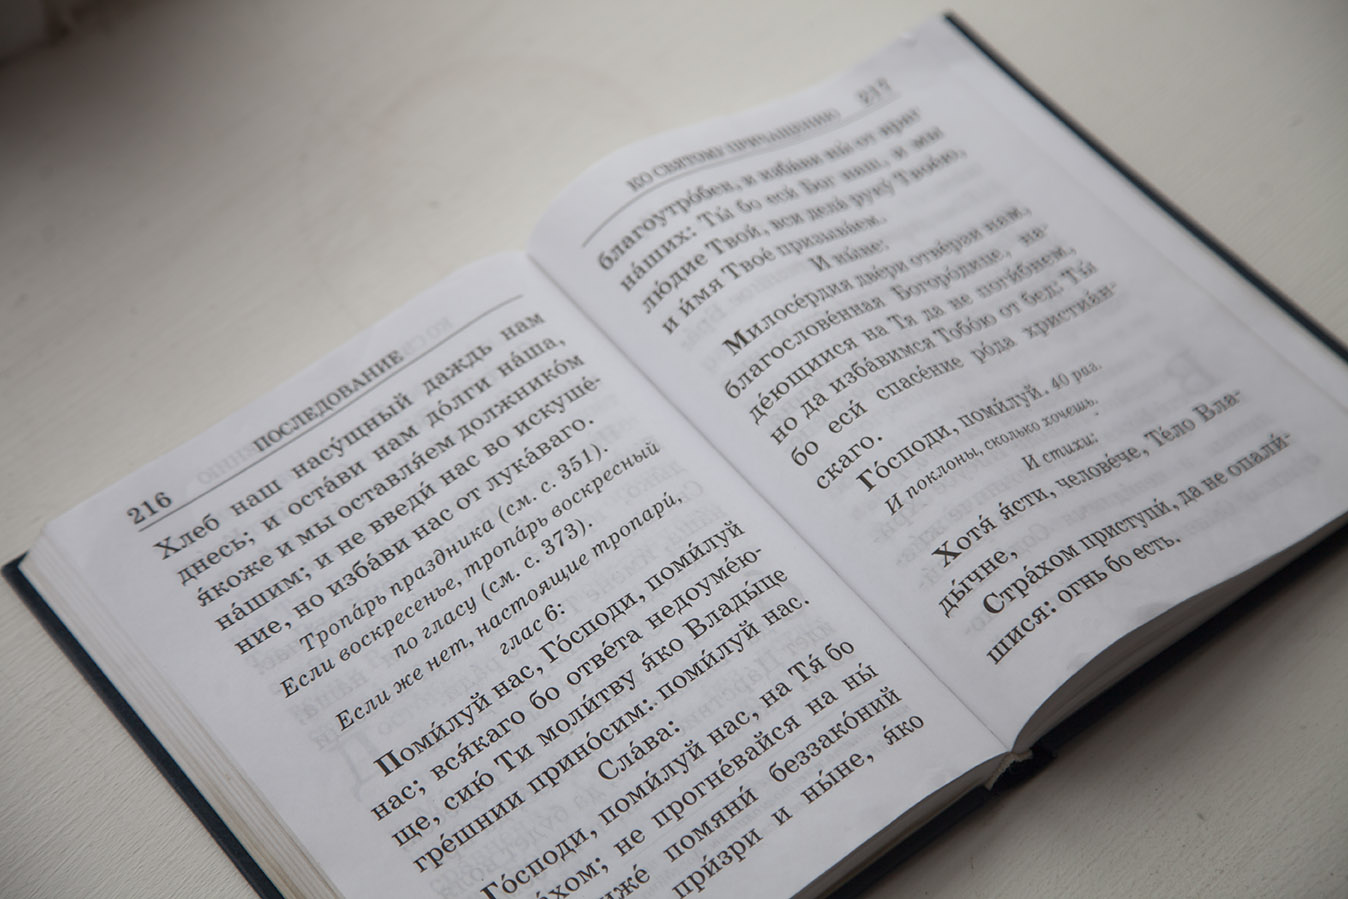 216
ПОСЛЕДОВАНИЕ
Хлеб наш насу́щный даждь нам
днесь; и оста́ви нам до́лги на́ша,
я́коже и мы оставля́ем должнико́м
на́шим; и не введи́ нас во искуше́-
ние, но изба́ви нас от лука́ваго.
Тропа́рь праздника (см. с. 351).
Если воскресенье, тропа́рь воскресный
по гласу (см. с. 373).
Если же нет, настоящие тропари́,
глас 6:
Поми́луй нас, Го́споди, поми́луй
нас; вся́каго бо отве́та недоуме́ю-
ще, сию́ Ти моли́тву я́ко Влады́це
гре́шнии прино́сим: поми́луй нас.
Сла́ва:
Го́споди, поми́луй нас, на Тя́ бо
а́хом; не прогне́вайся на ны́
ниже́ помяни́ беззако́ний
при́зри и ны́не, я́ко
КО СВЯТОМУ ПРИЧАЩЕНИЮ
217
благоутро́бен, и изба́ви ны́ от враг
на́ших: Ты́ бо еси́ Бог наш, и мы
лю́дие Твои́, вси дела́ руку́ Твое́ю,
и и́мя Твое́ призыва́ем.
И ны́не:
Милосе́рдия две́ри отве́рзи нам,
благослове́нная Богоро́дице, на-
де́ющиися на Тя да не поги́бнем,
но да изба́вимся Тобо́ю от бед: Ты́
бо еси́ спасе́ние ро́да христиа́н-
скаго.
Го́споди, поми́луй. 40 раз.
И поклоны, сколько хочешь.
И стихи:
Хотя́ я́сти, челове́че, Те́ло Вла-
ды́чне,
Стра́хом приступи́, да не опали́-
шися: огнь бо есть.